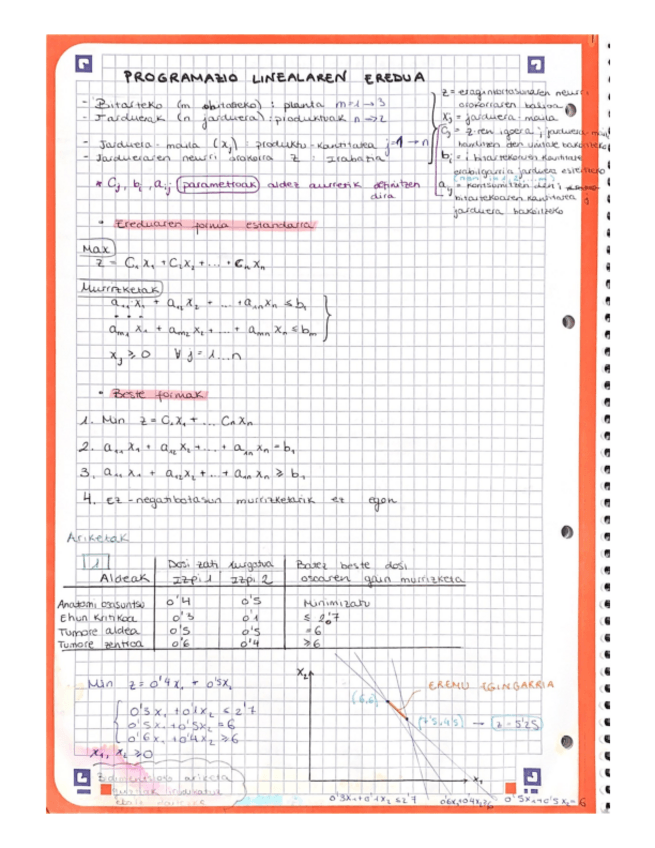 PROGRAMAZIO LINEALAREN EREDUA
- Bitarteko (m bitarteko) : planta m=1→3
- Jarduerak (n jarduera) : produktuak n→2
- Jarduera-maila (xj) : produktu-kantitatea j=1→n
- Jardueraren neurri orokorra z : Irabazia
* Cj, bi, aij parametroak aldez aurretik definitzen dira
z = eraginkortasunaren neurri
orokorraren balioa
xj = jarduera-maila
Cj = z-ren igoera j jarduera-maila
handitzen den unitate bakoitzeko
bi = i bitartekoaren kantitate
erabilgarria jarduera
aij = kontsumitzen den i
bitartekoaren kantitatea j
jarduera bakoitzeko
• Ereduaren forma estandarra
Max
z = C₁x₁ + C₂x₂ + ... + Cnxn
Murrizketak
a₁₁x₁ + a₁₂x₂ + ... + a₁nxn ≤ b₁
...
am₁x₁ + am₂x₂ + ... + amnxn ≤ bm
xj ≥ 0 ∀j = 1...n
• Beste formak
1. Min z = C₁x₁ + ... Cnxn
2. a₁₁x₁ + a₁₂x₂ + ... + a₁nxn = b₁
3. a₁₁x₁ + a₁₂x₂ + ... + a₁nxn ≥ b₁
4. Ez-negatibotasun murrizketarik ez egon
Ariketak
1
Dosi zati xurgatua Batez beste dosi
Aldeak Izpi 1 Izpi 2 osoaren gain murrizketa
Anatomi osasuntsu 0'4 0'5 Minimizatu
Ehun kritikoa 0'3 0'1 ≤ 2'7
Tumore aldea 0'5 0'5 = 6
Tumore zentroa 0'6 0'4 ≥ 6
Min z = 0'4x₁ + 0'5x₂
0'3x₁ + 0'1x₂ ≤ 2'7
0'5x₁ + 0'5x₂ = 6
0'6x₁ + 0'4x₂ ≥ 6
x₁, x₂ ≥ 0
x₂
EREMU EGINGARRIA
(6,6)
(7'5,4'5) → z = 5'25
x₁
0'3x₁+0'1x₂ ≤ 2'7 0'6x₁+0'4x₂ ≥ 6 0'5x₁+0'5x₂ = 6
ariketa